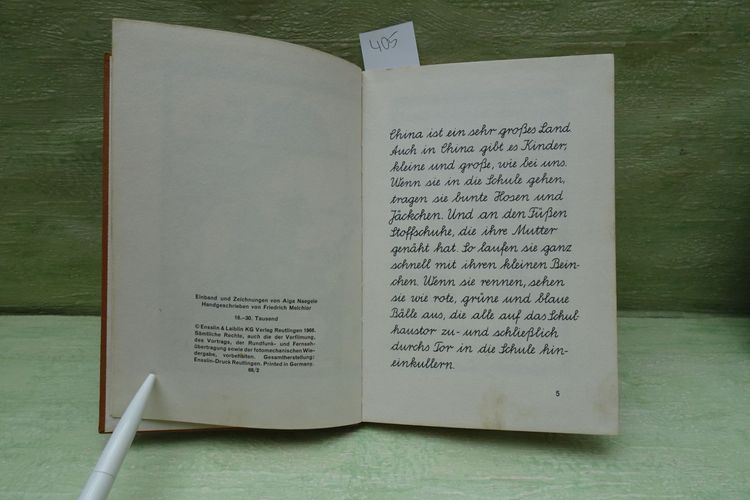 405
Einband und Zeichnungen von Aiga Naegele
Handgeschrieben von Friedrich Melchior
16.–30. Tausend
© Ensslin & Laiblin KG Verlag Reutlingen 1966.
Sämtliche Rechte, auch die der Verfilmung,
des Vortrags, der Rundfunk- und Fernseh-
übertragung sowie der fotomechanischen Wie-
dergabe, vorbehalten. Gesamtherstellung:
Ensslin-Druck Reutlingen. Printed in Germany.
68/2
China ist ein sehr großes Land.
Auch in China gibt es Kinder,
kleine und große, wie bei uns.
Wenn sie in die Schule gehen,
tragen sie bunte Hosen und
Jäckchen. Und an den Füßen
Stoffschuhe, die ihre Mutter
genäht hat. So laufen sie ganz
schnell mit ihren kleinen Bein-
chen. Wenn sie rennen, sehen
sie wie rote, grüne und blaue
Bälle aus, die alle auf das Schul-
haustor zu- und schließlich
durchs Tor in die Schule hin-
einkullern.
5